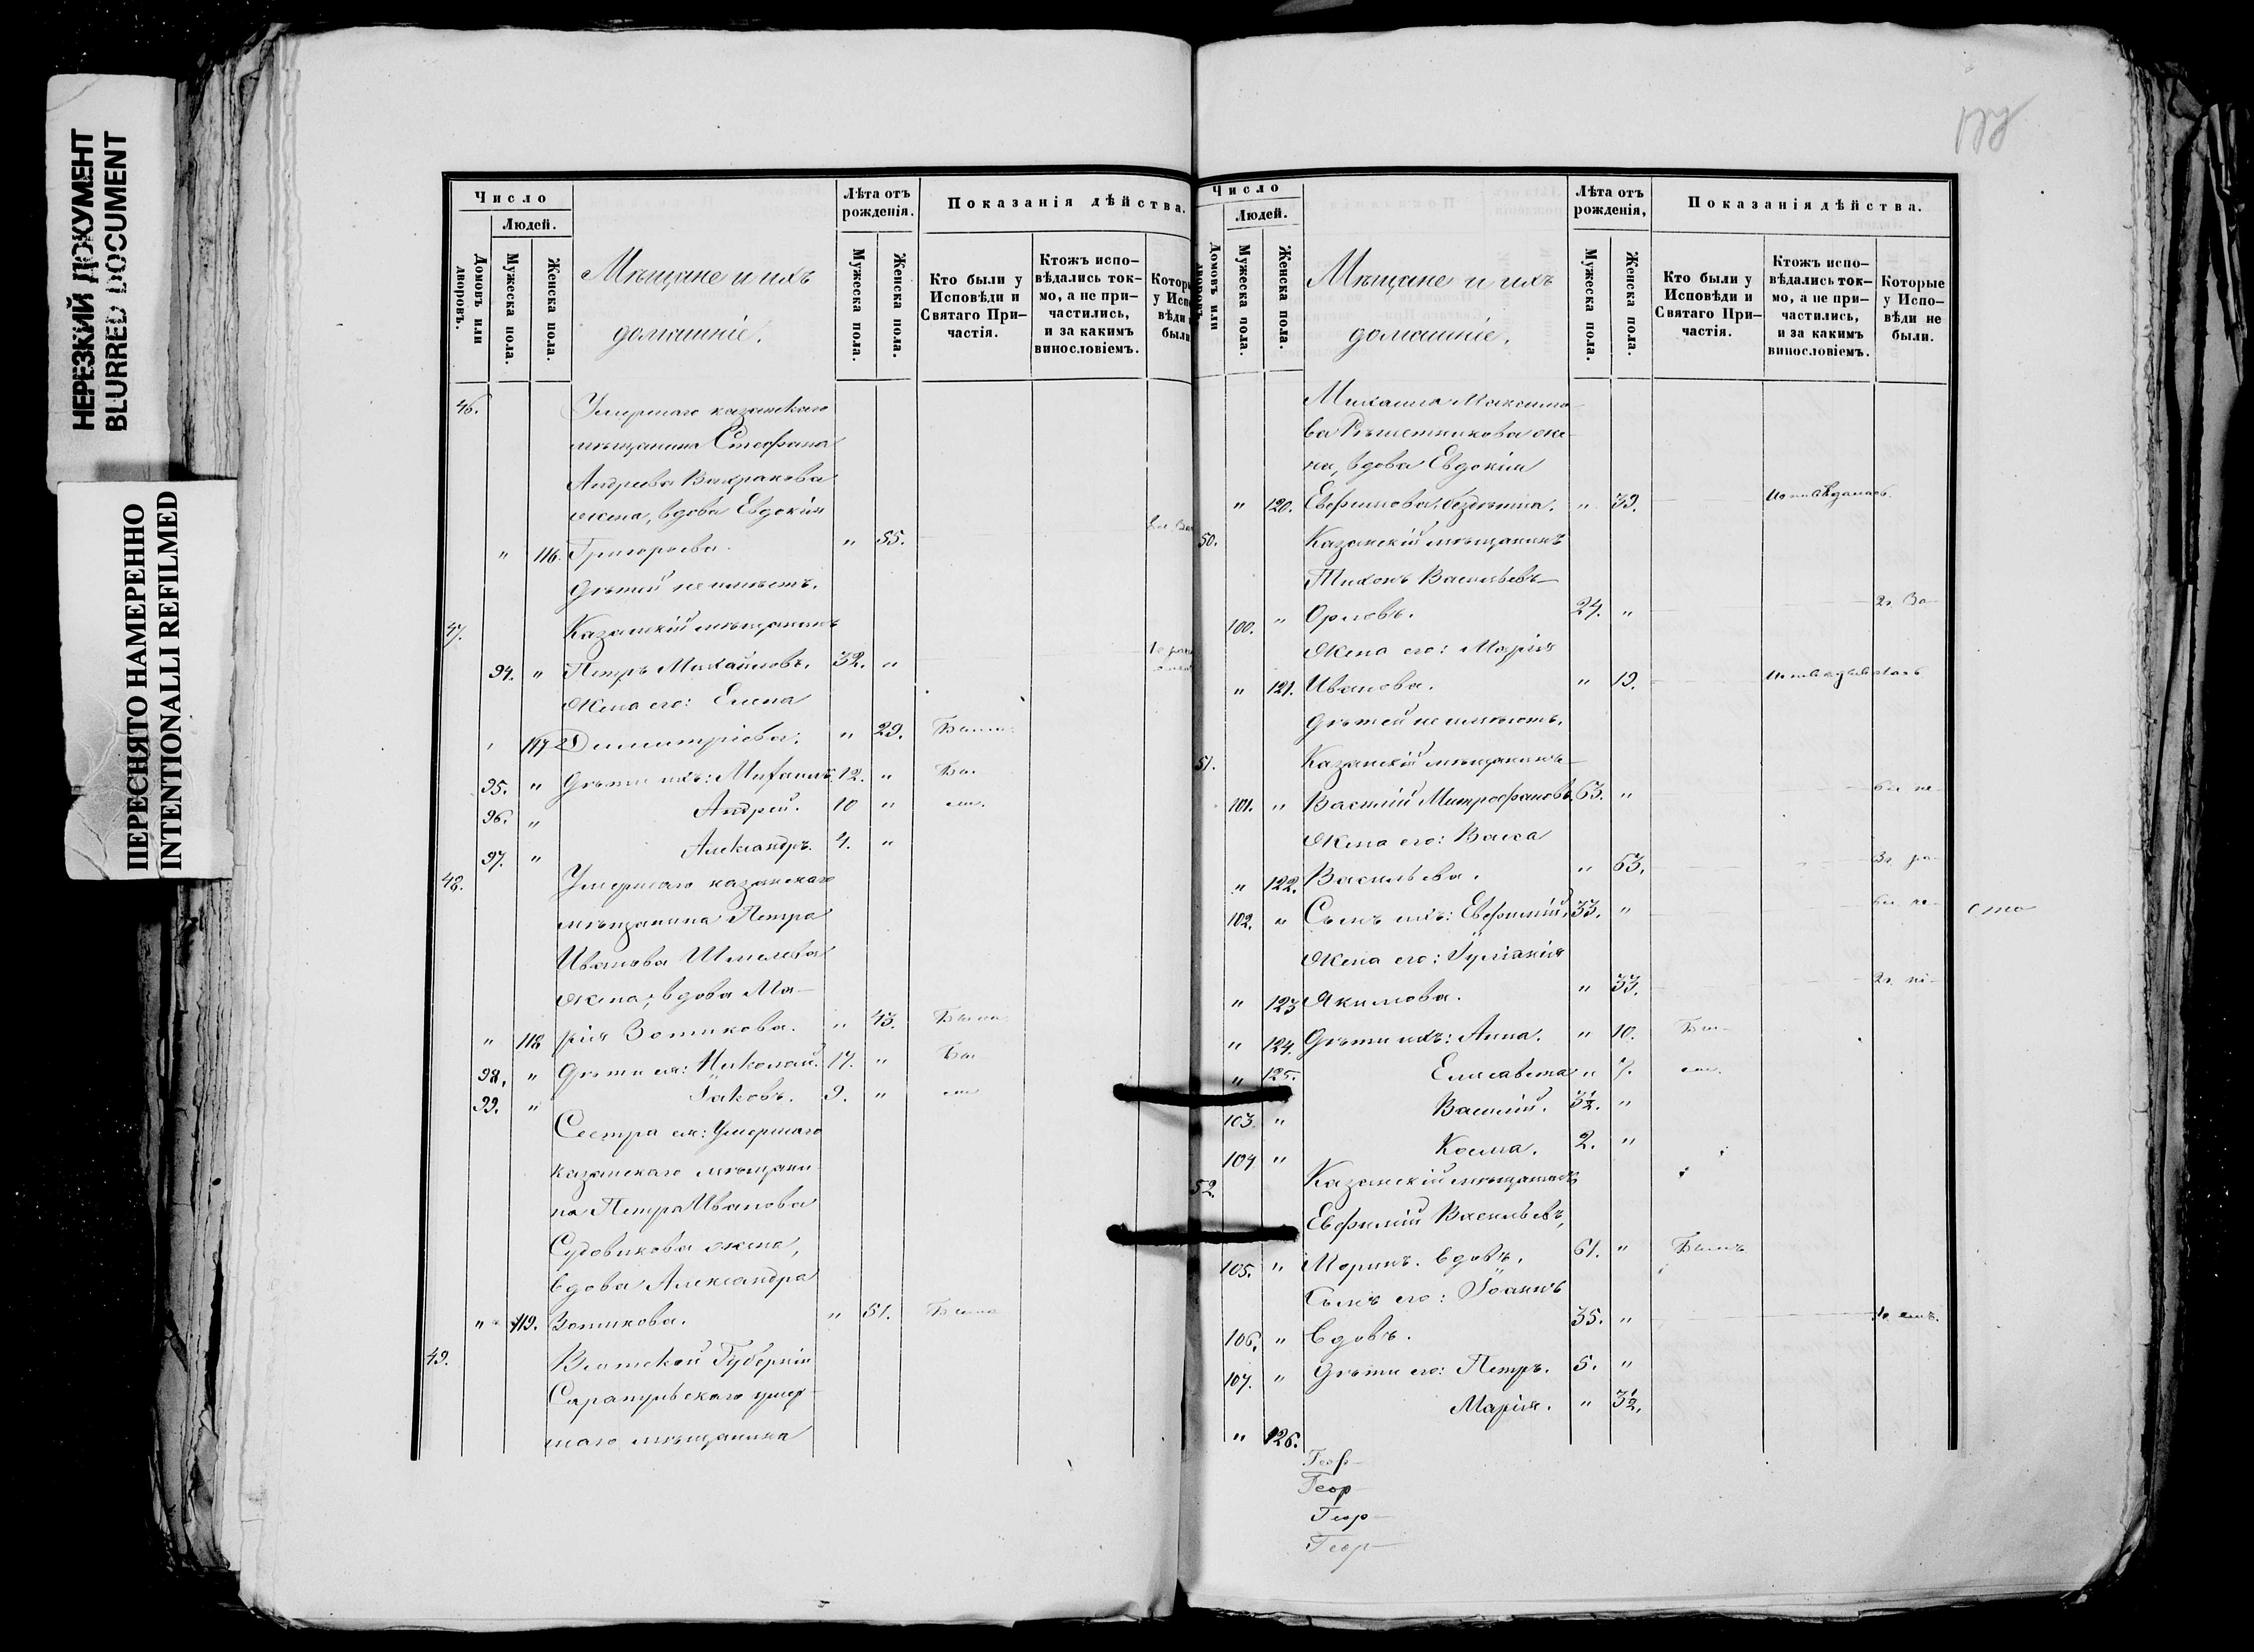 НЕРЕЗКИЙ ДОКУМЕНТ
BLURRED DOCUMENT
ПЕРЕСНЯТО НАМЕРЕННО
INTENTIONALLI REFILMED
Число
Людей.
Домовъ или дворовъ.
Мужеска пола.
Женска пола.
Мѣщане и ихъ
домашніе.
Лѣта отъ рожденія.
Мужеска пола.
Женска пола.
Показанія дѣйства.
Кто были у Исповѣди и Святаго Причастія.
Ктожъ исповѣдались токмо, а не причастились, и за какимъ винословіемъ.
46. Умершаго казанскаго
мѣщанина Стефана
Андреева
жена, вдова Евдокія
" 116. Григорьева. " 55.
Дѣтей не имѣетъ.
47. Казанскій мѣщанинъ
94. " Петръ Михайловъ. 32. "
Жена его: Елена
117 Димитріева. " 29. Была
95. " Дѣти ихъ: Михаилъ. 12. " Бы-
96. " Андрей. 10 " ли.
97. " Александръ. 4. "
48. Умершаго казанскаго
мѣщанина Петра
Иванова Шмелева
жена, вдова Ма-
" 118 рія Зотикова. " 43. Была
98. " Дѣти ея: Николай. 17. " Бы
99. " Іаковъ. 9. " ли
Сестра ея: Умершаго
казанскаго мѣщани
на Петра Иванова
Судовикова жена,
вдова Александра
" 119. Зотикова. " 51. Была
49. Вятской Губерніи
Сарапульскаго умер
шаго мѣщанина
Число
Людей.
Домовъ или дворовъ.
Мужеска пола.
Женска пола.
Мѣщане и ихъ
домашніе.
Лѣта отъ рожденія,
Мужеска пола.
Женска пола.
Показанія дѣйства.
Кто были у Исповѣди и Святаго Причастія.
Ктожъ исповѣдались токмо, а не причастились, и за какимъ винословіемъ.
Которые у Исповѣди не были.
Михаила Максимо-
ва Рѣшетникова же-
на, вдова Евдокія
" 120. Евфимова, бездѣтна. " 39. Исповѣдалась.
50. Казанскій мѣщанинъ
Тихонъ Васильевъ
100. " Орловъ. 24. "
Жена его: Марія
" 121. Иванова. " 19.
Дѣтей не имѣютъ.
51. Казанскій мѣщанинъ
101. " Василій Митрофановъ. 63. "
Жена его: Васса
" 122. Васильева. " 63.
102. " Сынъ ихъ: Евфимій. 33. "
Жена его: Гуліанія
" 123 Якимова. " 33.
" 124. Дѣти ихъ: Анна. " 10. Бы-
" 125. Елисавета " 7. ли.
103 " Василій. 3½. "
104 " Косма. 2. "
52. Казанскій мѣщанинъ
Евфимій Васильевъ
105. " вдовъ. 61. " Былъ
Сынъ его: Іоаннъ
106. " вдовъ. 35. "
107. " Дѣти его: Петръ. 5. "
" 126. Марія. " 3½.
Геор-
Геор-
Геор-
Геор-